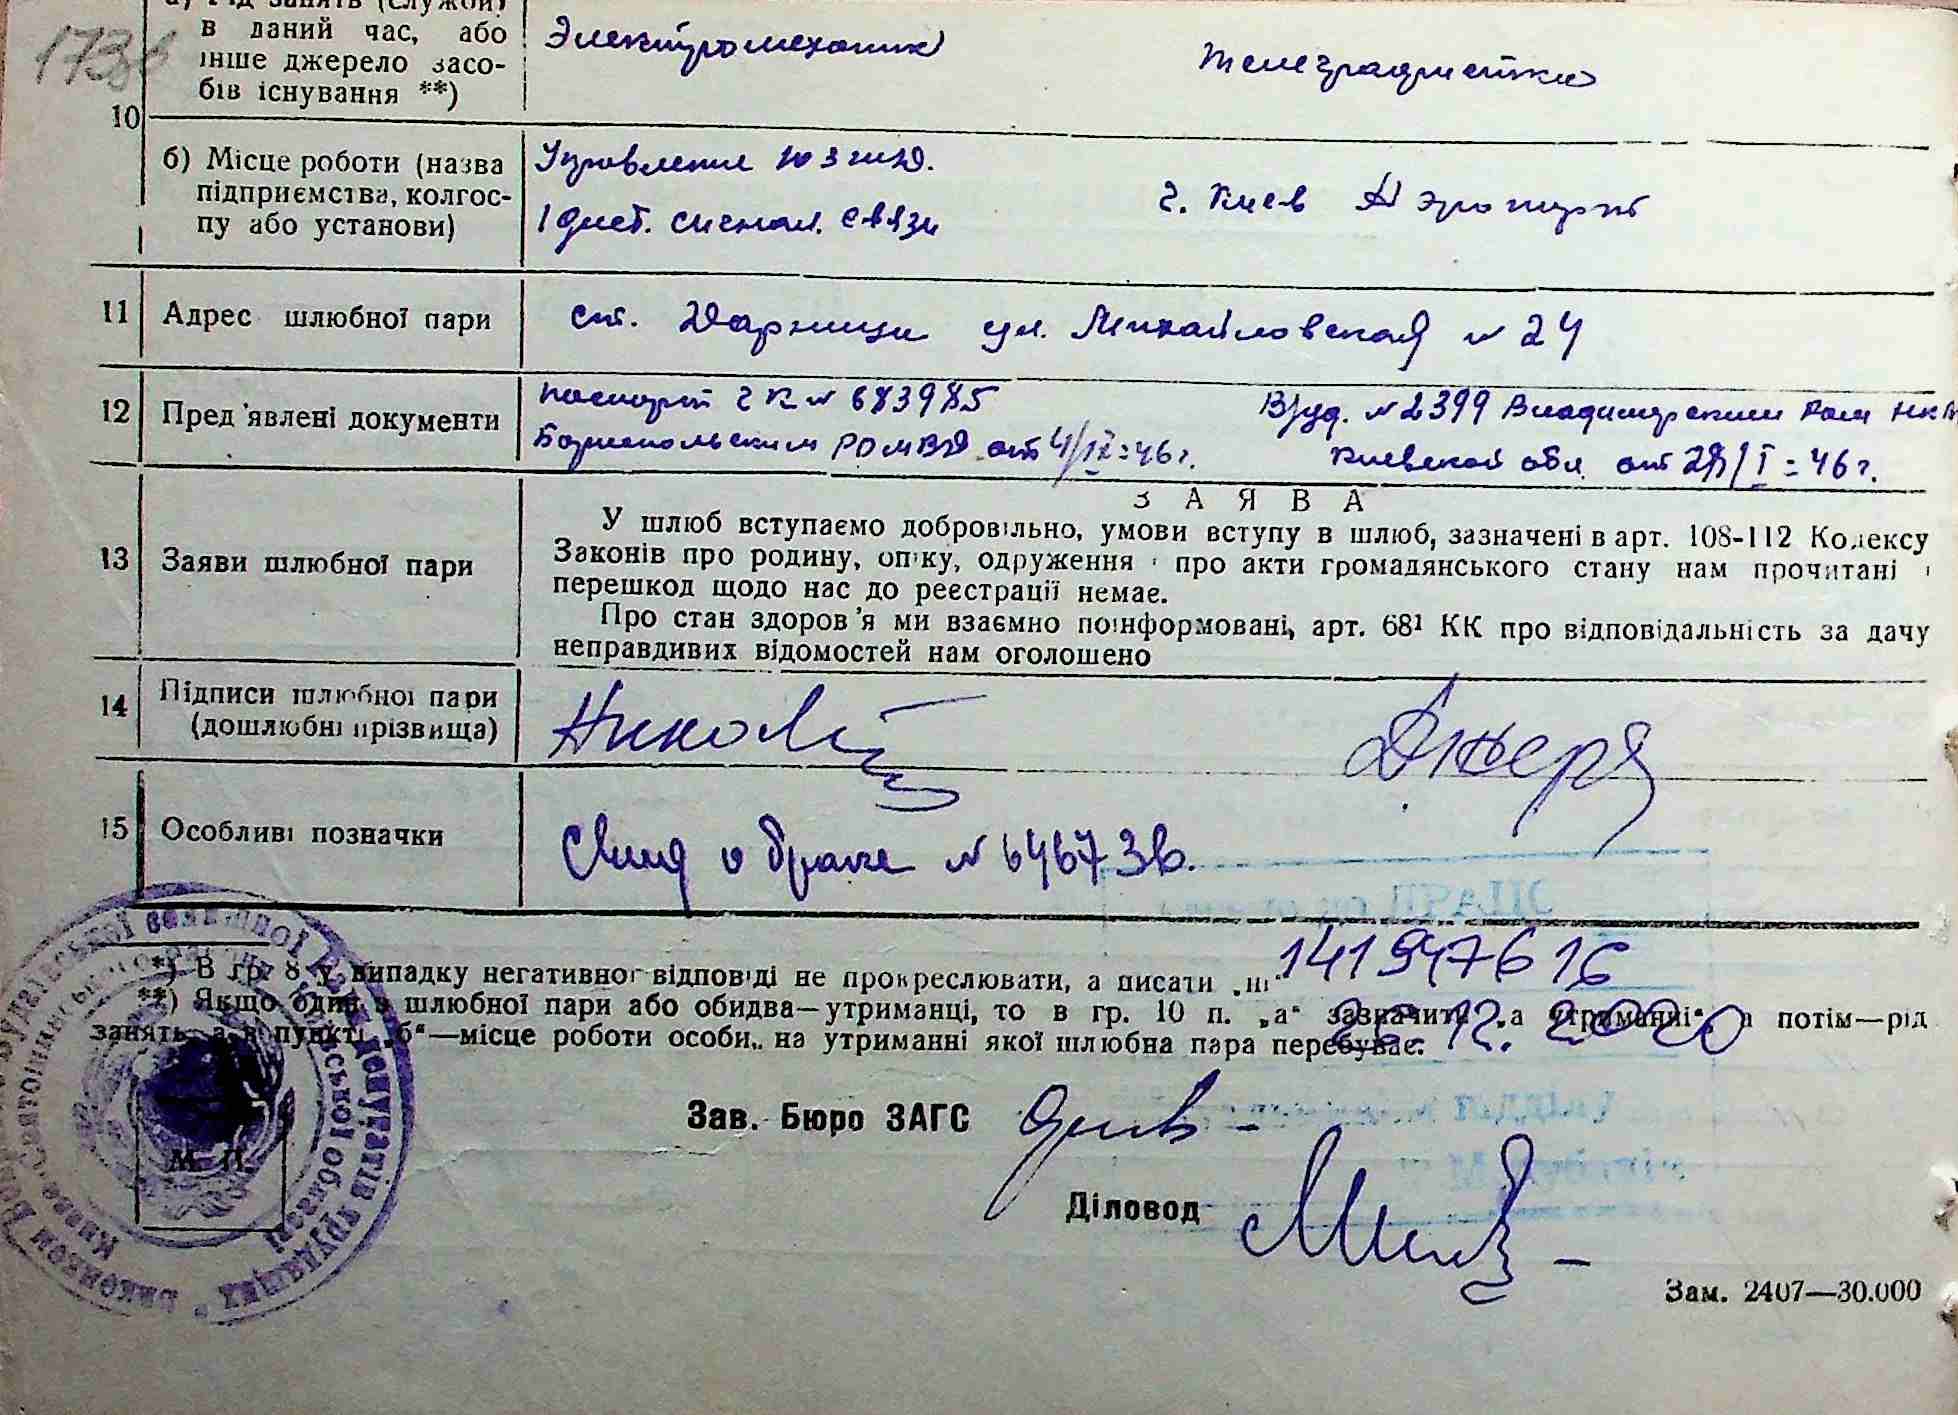 173
а) Рід занять (служби)
в даний час, або
інше джерело засо-
бів існування **)
Электромеханик
телеграфистка
10
б) Місце роботи (назва
підприємства, колгос-
пу або установи)
Управление ЮЗжд.
1 дист. сигнал. связи
г. Киев Аэропорт
11 Адрес шлюбної пари
ст. Дарница ул. Михайловская № 24
12 Пред'явлені документи
паспорт ЧК № 683985
Бориспольским РОМВД от 4/IX=46 г.
В/уд. № 2399 Владимирским
Киевской обл. от 28/I=46 г.
13 Заяви шлюбної пари
ЗАЯВА
У шлюб вступаємо добровільно, умови вступу в шлюб, зазначені в арт. 108-112 Кодексу
Законів про родину, опіку, одруження і про акти громадянського стану нам прочитані і
перешкод щодо нас до реєстрації немає.
Про стан здоров'я ми взаємно поінформовані, арт. 68¹ КК про відповідальність за дачу
неправдивих відомостей нам оголошено
14 Підписи шлюбної пари
(дошлюбні прізвища)
15 Особливі позначки
Свид о браке №
*) В гр. 8 у випадку негативної відповіді не прокреслювати, а писати „ні"
**) Якщо один з шлюбної пари або обидва—утриманці, то в гр. 10 п. „а" зазначити „на утриманні", а потім—рід
занять, а в пункті „б"—місце роботи особи, на утриманні якої шлюбна пара перебуває.
12. 2020
Зав. Бюро ЗАГС
Діловод
М. П.
Зам. 2407—30.000